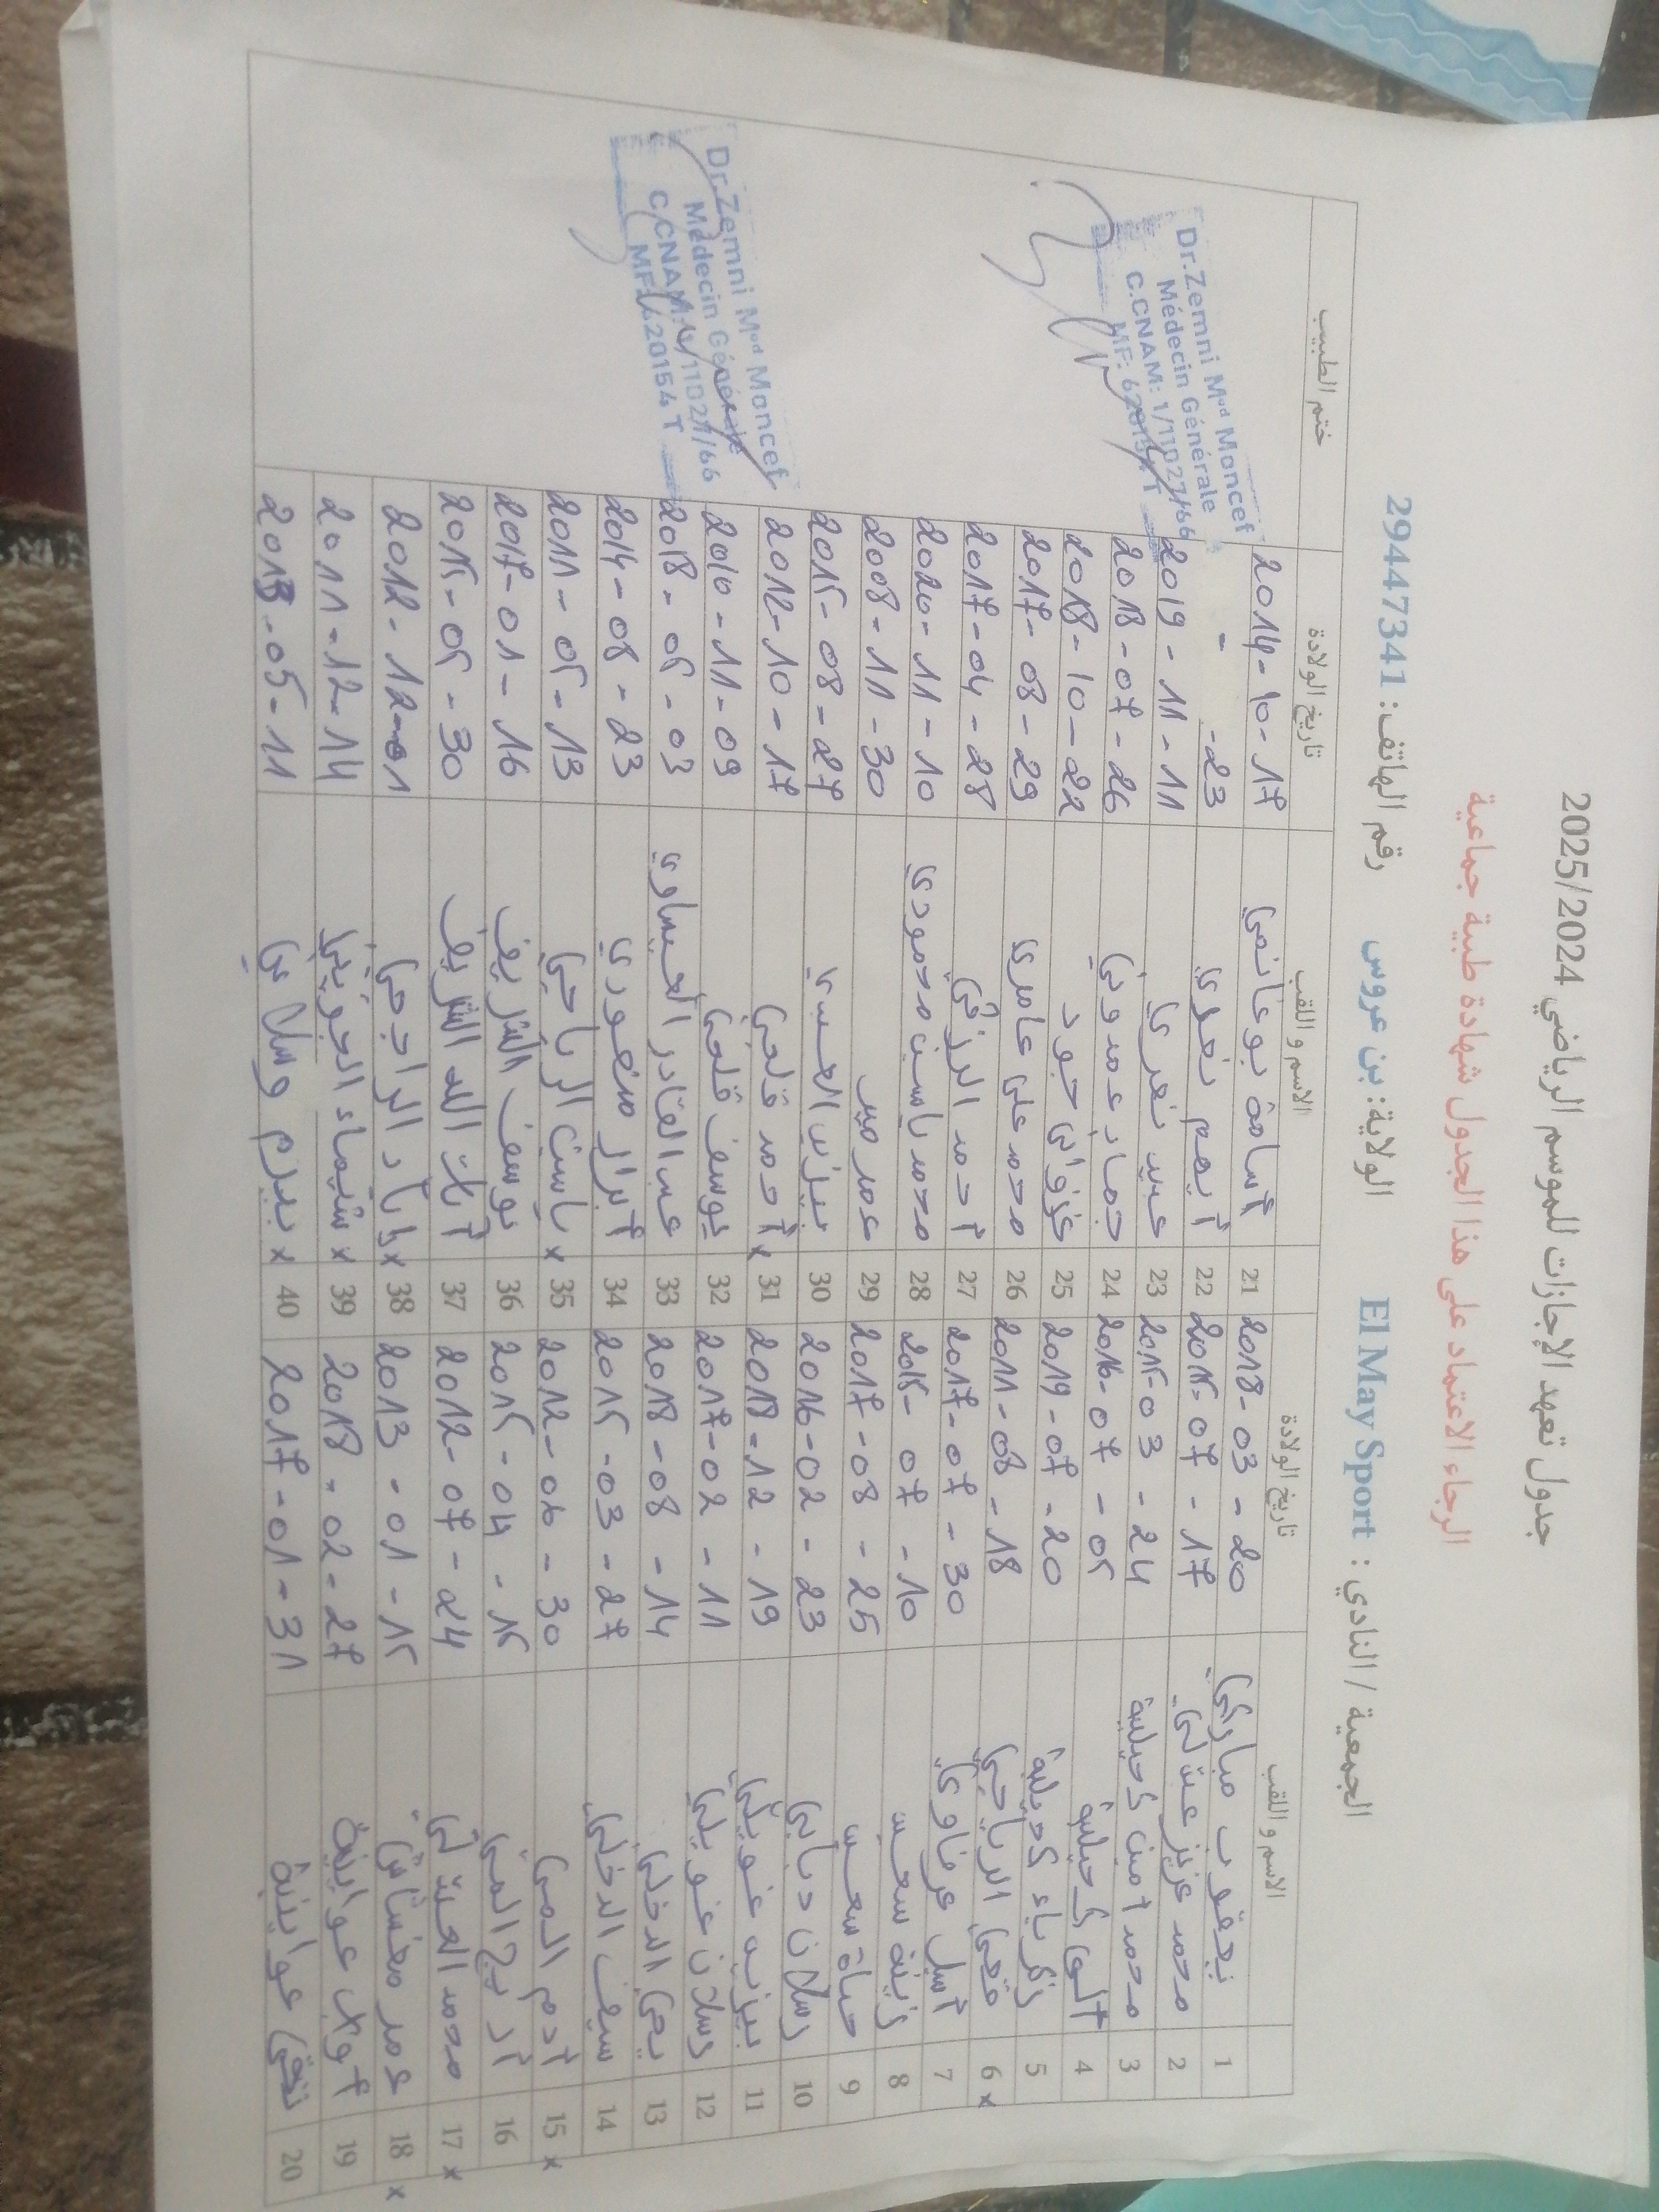 جدول تعهد الإجازات للموسم الرياضي 2025/2024
الرجاء الاعتماد على هذا الجدول شهادة طبية جماعية
الجمعية / النادي : El May Sport الولاية: بن عروس رقم الهاتف: 29447341
الاسم و اللقب تاريخ الولادة الاسم و اللقب تاريخ الولادة ختم الطبيب
1 يعقوب مباركي 2018-03-20 21 أسامة بوغانمي 2014-10-17
2 محمد عزيز 2015-07-17 22 -23
3 محمد أمين كحيلية 2015-03-24 23 عبير نصري 2019-11-11
4 كحيلية 2016-07-05 24 2018-07-26
5 زكرياء كحيلية 2019-07-20 25 جود 2018-10-22
6 x الرياحي 2011-08-18 26 محمد علي عامري 2017-08-29
7 أسيل عرفاوي 2017-07-30 27 أحمد الرزقي 2017-04-28
8 زينة 2015-07-10 28 محمد ياسين محمودي 2020-11-10
9 حياة 2017-08-25 29 عمر 2008-11-30
10 رسلان دبابي 2016-02-23 30 2015-08-27
11 بيزيد غويلي 2018-12-19 31 x أحمد قلعي 2012-10-17
12 رسلان غويلي 2017-02-11 32 يوسف قلعي 2010-11-09
13 يحي الدخلي 2018-08-14 33 عبد القادر العيساوي 2018-05-03
14 سيف الدخلي 2015-03-27 34 أبرار منصوري 2014-08-23
15 x آدم المي 2012-06-30 35 x ياسين الرياحي 2011-05-13
16 أريج المي 2015-04-15 36 يوسف الشريف 2017-01-16
17 x محمد 2012-07-24 37 آيات الله الشريف 2015-05-30
18 x عمر 2013-01-15 38 x إياد الراجحي 2012-12-01
19 عواينية 2018-02-27 39 x شيماء الجويني 2011-12-14
20 عواينية 2017-01-31 40 x بيرم وسلاتي 2013-05-11
Dr.Zemni Med Moncef
Médecin Générale
C.CNAM: 1/11027/66
MF: 620154 T
Dr.Zemni Med Moncef
Médecin Générale
C.CNAM: 1/11027/66
MF: 620154 T